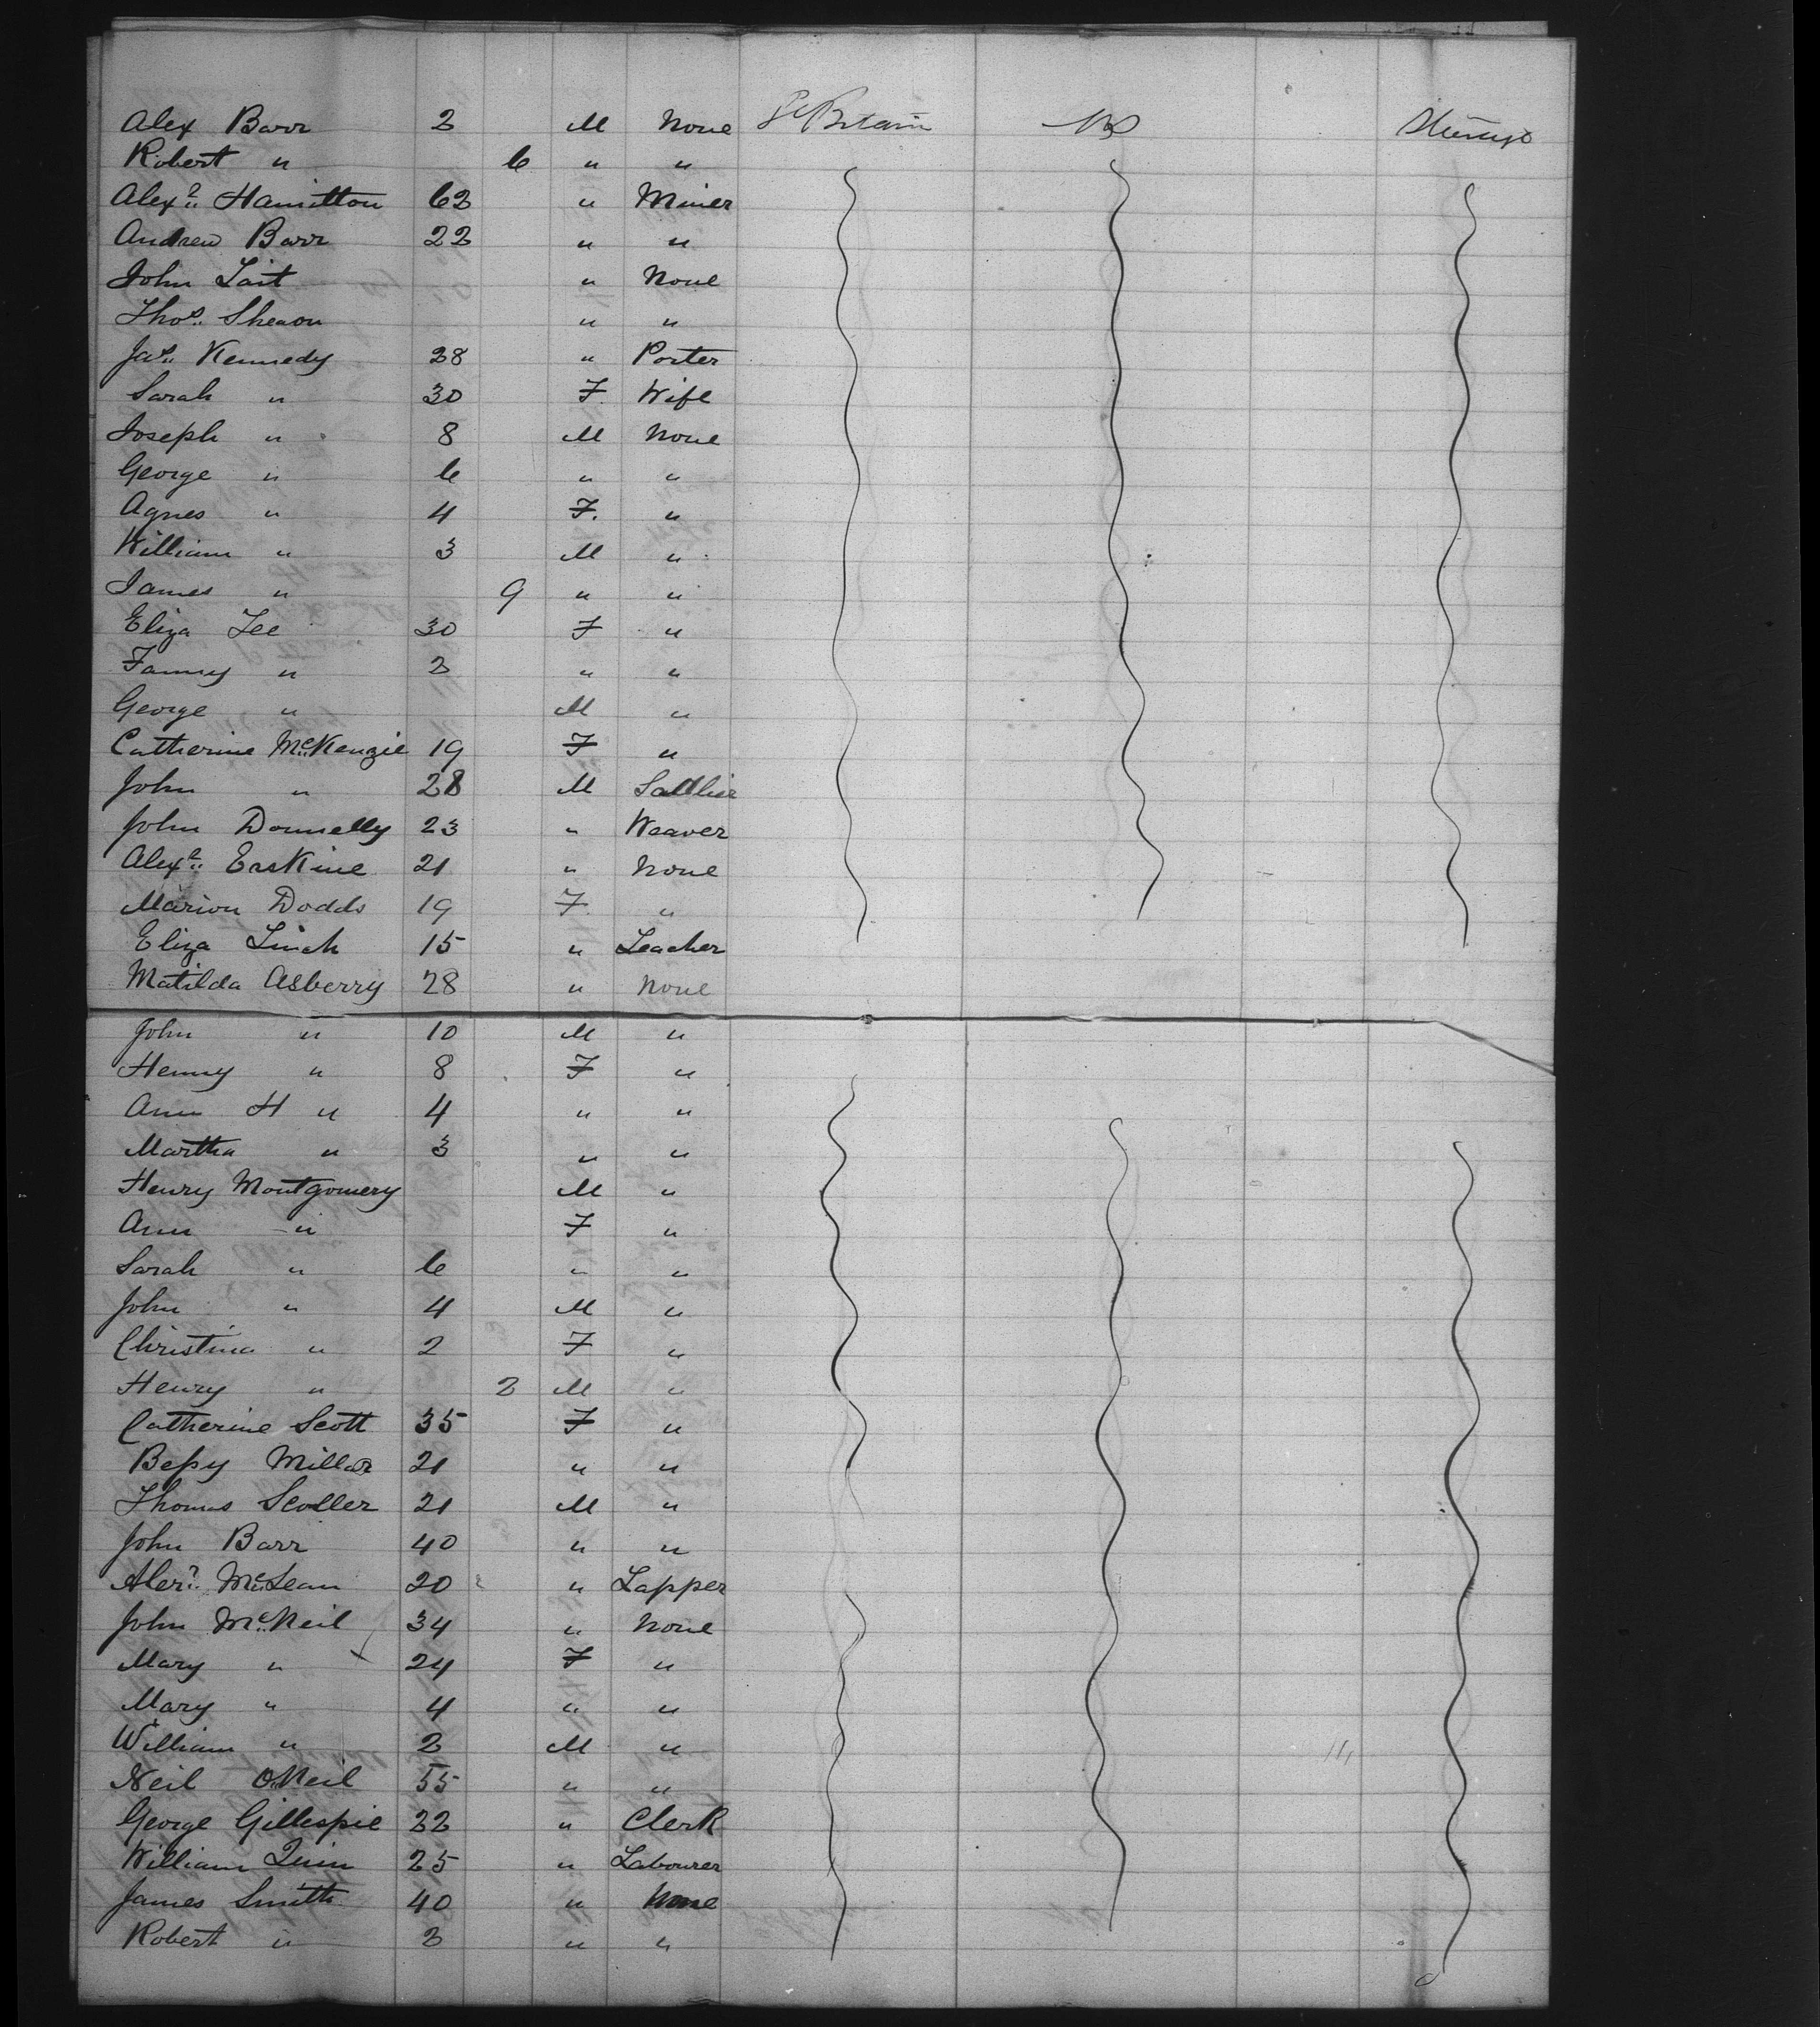 Alex Barr 2 M None Gt Britain US Steerage
Robert " 6 " "
Alexr. Hamilton 62 " Miner
Andrew Barr 22 " "
John Tait " None
Thos. Shearon " "
Jas. Kennedy 28 " Porter
Sarah " 30 F. Wife
Joseph " 8 M None
George " 6 " "
Agnes " 4 F. "
William " 3 M "
James " 9 " "
Eliza Lee 30 F "
Fanny " 2 " "
George " M "
Catherine McKenzie 19 F "
John " 28 M
John Donnelly 23 " Weaver
Alexr. Erskine 21 " None
Marion Dodds 19 F. "
Eliza Linch 15 " Teacher
Matilda Asberry 28 " None
John " 10 M "
Henny " 8 F "
Ann H " 4 " "
Martha " 3 " "
Henry Montgomery M "
Ann " F "
Sarah " 6 " "
John " 4 M "
Christina " 2 F "
Henry " 2 M "
Catherine Scott 35 F "
Bessy Millar 21 " "
Thomas Scoller 21 M "
John Barr 40 " "
Alexr. McLean 20 " Lapper
John McNeil 34 " None
Mary " 24 F "
Mary " 4 " "
William " 2 M "
Neil O'Neil 55 " "
George Gillespie 22 " Clerk
William Quin 25 " Labourer
James Smith 40 " None
Robert " 2 " "